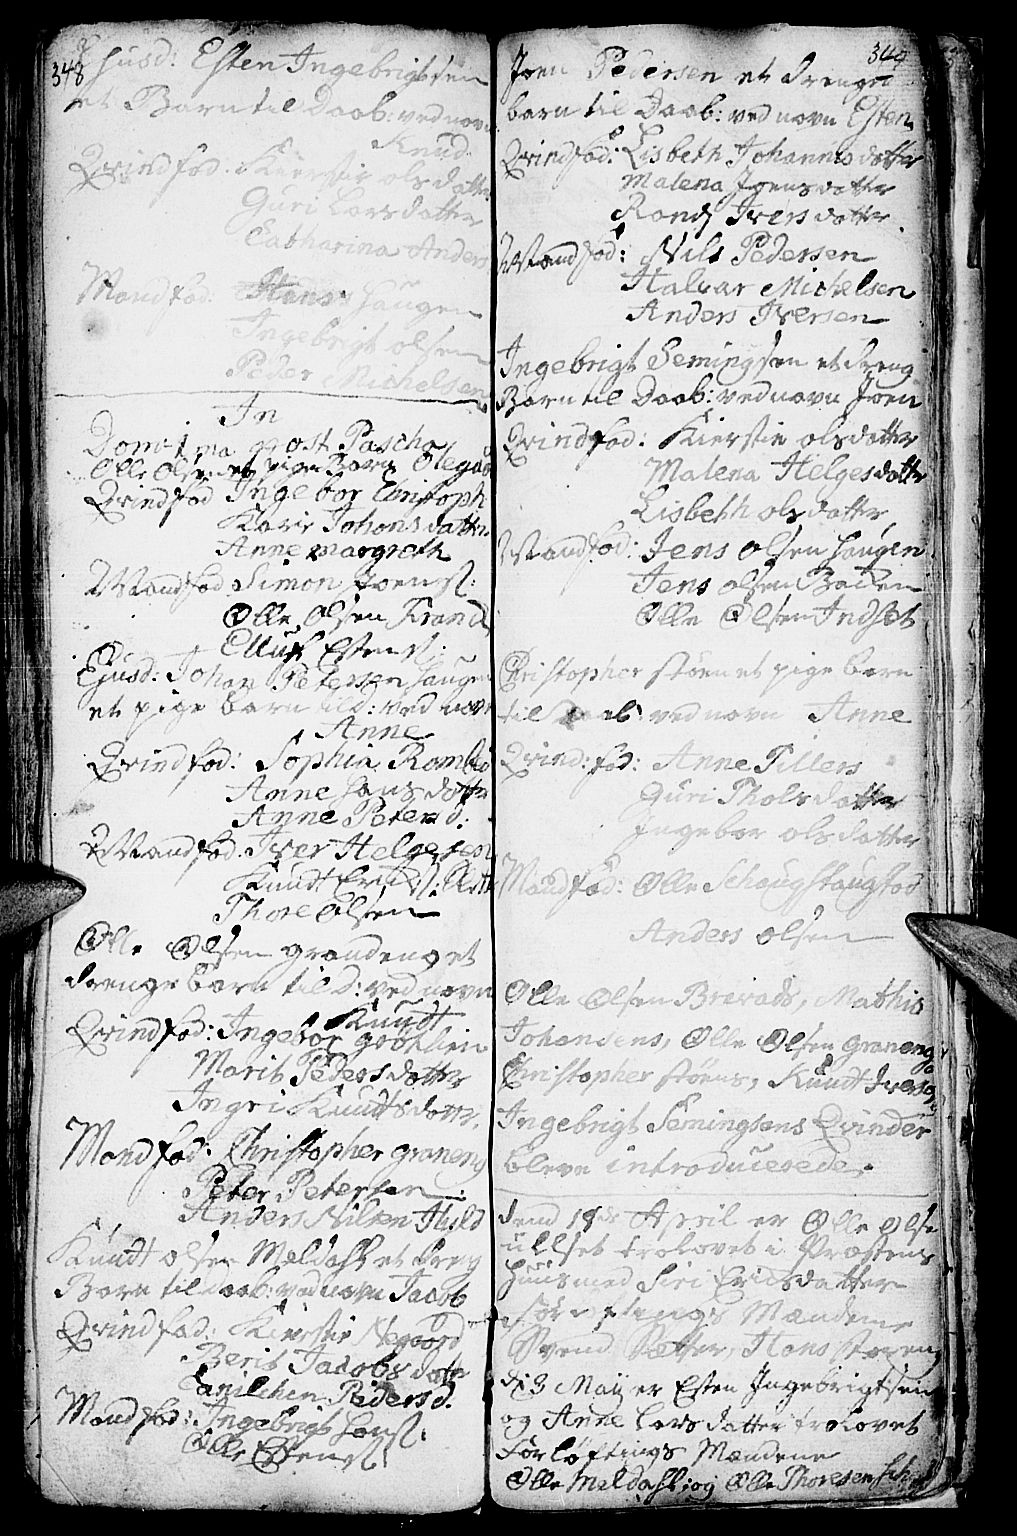 348
Ejusd: Esten Ingebrigtsen
et Barn til Daab: ved navn
Knud
Qvindfad: Kierstie olsdatter
Guri Larsdatter
Catharina Anders
Mandfad: Hans Haugen
Ingebrigt olsen
Peder Michelsen
In
Dom: 1ma post Pascha
Olle Olsen et pige Barn Olegaar
Qvindfad Ingebor Christoph
Karie Johansdatter
Anne margreth
Mandfad Simon Joens:
Olle Olsen Krand
Elluf Estens:
Ejusd: Johan Petersen Haugen
et pige barn til d: ved navn
Anne
Qvindfad: Sophia
Anne Hansdatter
Anne Petersd:
Mandfad: Iver Helgesen
Knudt Erichs.
Thore Olsen
Olle Olsen grandenget
drenge barn til d: ved navn
Knudt
Qvindfad: Ingebor
Marit Pedersdatter
Ingri Knudtsdatter
Mandfad: Christopher graneng
Peter Petersen
Anders Nilsen
Knudt olsen Meldahl et dreng
Barn til daab: ved navn Jacob
Qvindfad: Kierstie Negaard
Berit Jacobsdatter
Pedersd.
Mandfad: Ingebrigt Hans:
Olle Estens:
349
Joen Pedersen et drenge
barn til Daab: ved navn Esten
Qvindfad: Lisbeth Johannesdatter
Malena Joensdatter
Randj Iversdatter
Mandfad: Nils Pedersen
Halvar Michelsen
Anders Iversen
Ingebrigt Semingsen et dreng
Barn til Daab: ved navn Joen
Qvindfad: Kierstie olsdatter
Malena Helgesdatter
Lisbeth olsdatter
Mandfad: Jens olsen Haugen
Jens olsen
Olle Olsen Indset
Christopher støen et pige barn
til Daab ved navn Anne
Qvind:fad: Anne Tillers
Guri Tholsdatter
Ingebor olsdatter
Mandfad: Olle
Anders olsen
Olle Olsen Brevads, Mathis
Johansens, Olle Olsen graneng
Christopher støens, Knudt Ivers
Ingebrigt Semingsens Qvinder
bleve introducerede.
dend 18de April er Olle olse
ullset trolovet i Præstens
Huus med Siri Erichsdatter
Mændene
Svend Sætter, Hans støren
d: 3 Maij er Esten Ingebrigtsen
og Anne Larsdatter trolovet
Forløftnings Mændene
Olle Meldahl og Olle Thoresen